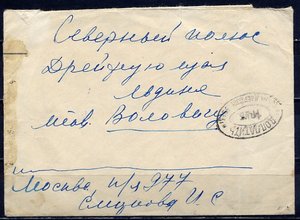 Северный полюс
Дрейфующая
льдина
тов. Воловичу
ДОПЛАТИТЬ
Москва п/я 977
Смирнова И С